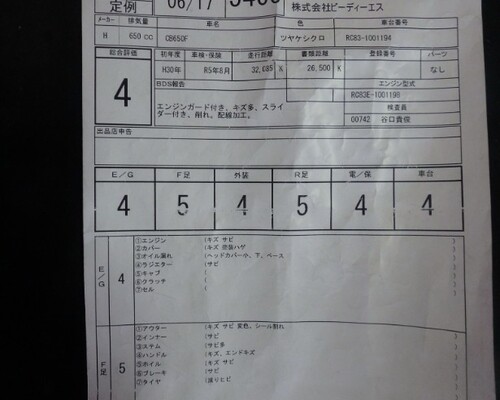 定例 06/17 株式会社ビーディーエス
メーカー 排気量 車名 色 車台番号
H 650 cc CB650F ツヤケシクロ RC83-1001194
総合評価 初年度 車検・保険 走行距離 書類距離 登録番号 パーツ
4 H30年 R5年8月 32,685 K 26,500 K なし
BDS報告 エンジン型式
エンジンガード付き、キズ多、スライダー付き、削れ、配線加工。 RC83E-1001198
検査員
00742 谷口貴俊
出品店申告
E/G F足 外装 R足 電/保 車台
4 5 4 5 4 4
E/G 4
①エンジン (キズ サビ )
②カバー (キズ 塗装ハゲ )
③オイル漏れ (ヘッドカバー小、下、ベース )
④ラジエター (サビ )
⑤キャブ ( )
⑥クラッチ ( )
⑦セル ( )
F足 5
①アウター (キズ サビ 変色、シール割れ )
②インナー (サビ )
③ステム (サビ多 )
④ハンドル (キズ、エンドキズ )
⑤ホイル (キズ サビ )
⑥ブレーキ (サビ )
⑦タイヤ (減りヒビ )